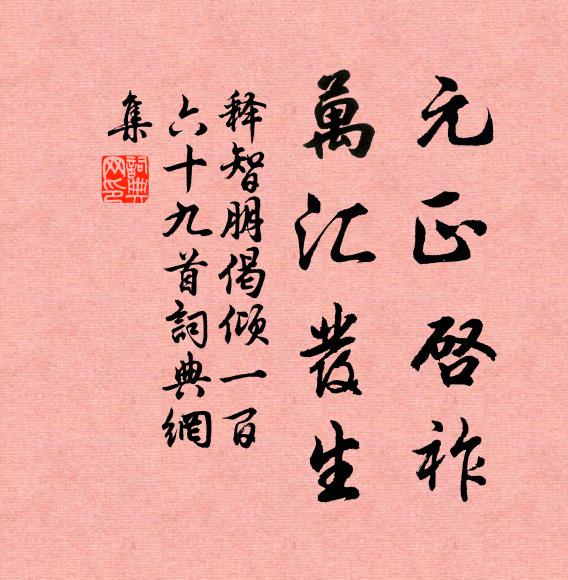 元正啓祚
萬汇發生
释智朋偈倾一百
六十九首詞典網
集
詞典網印